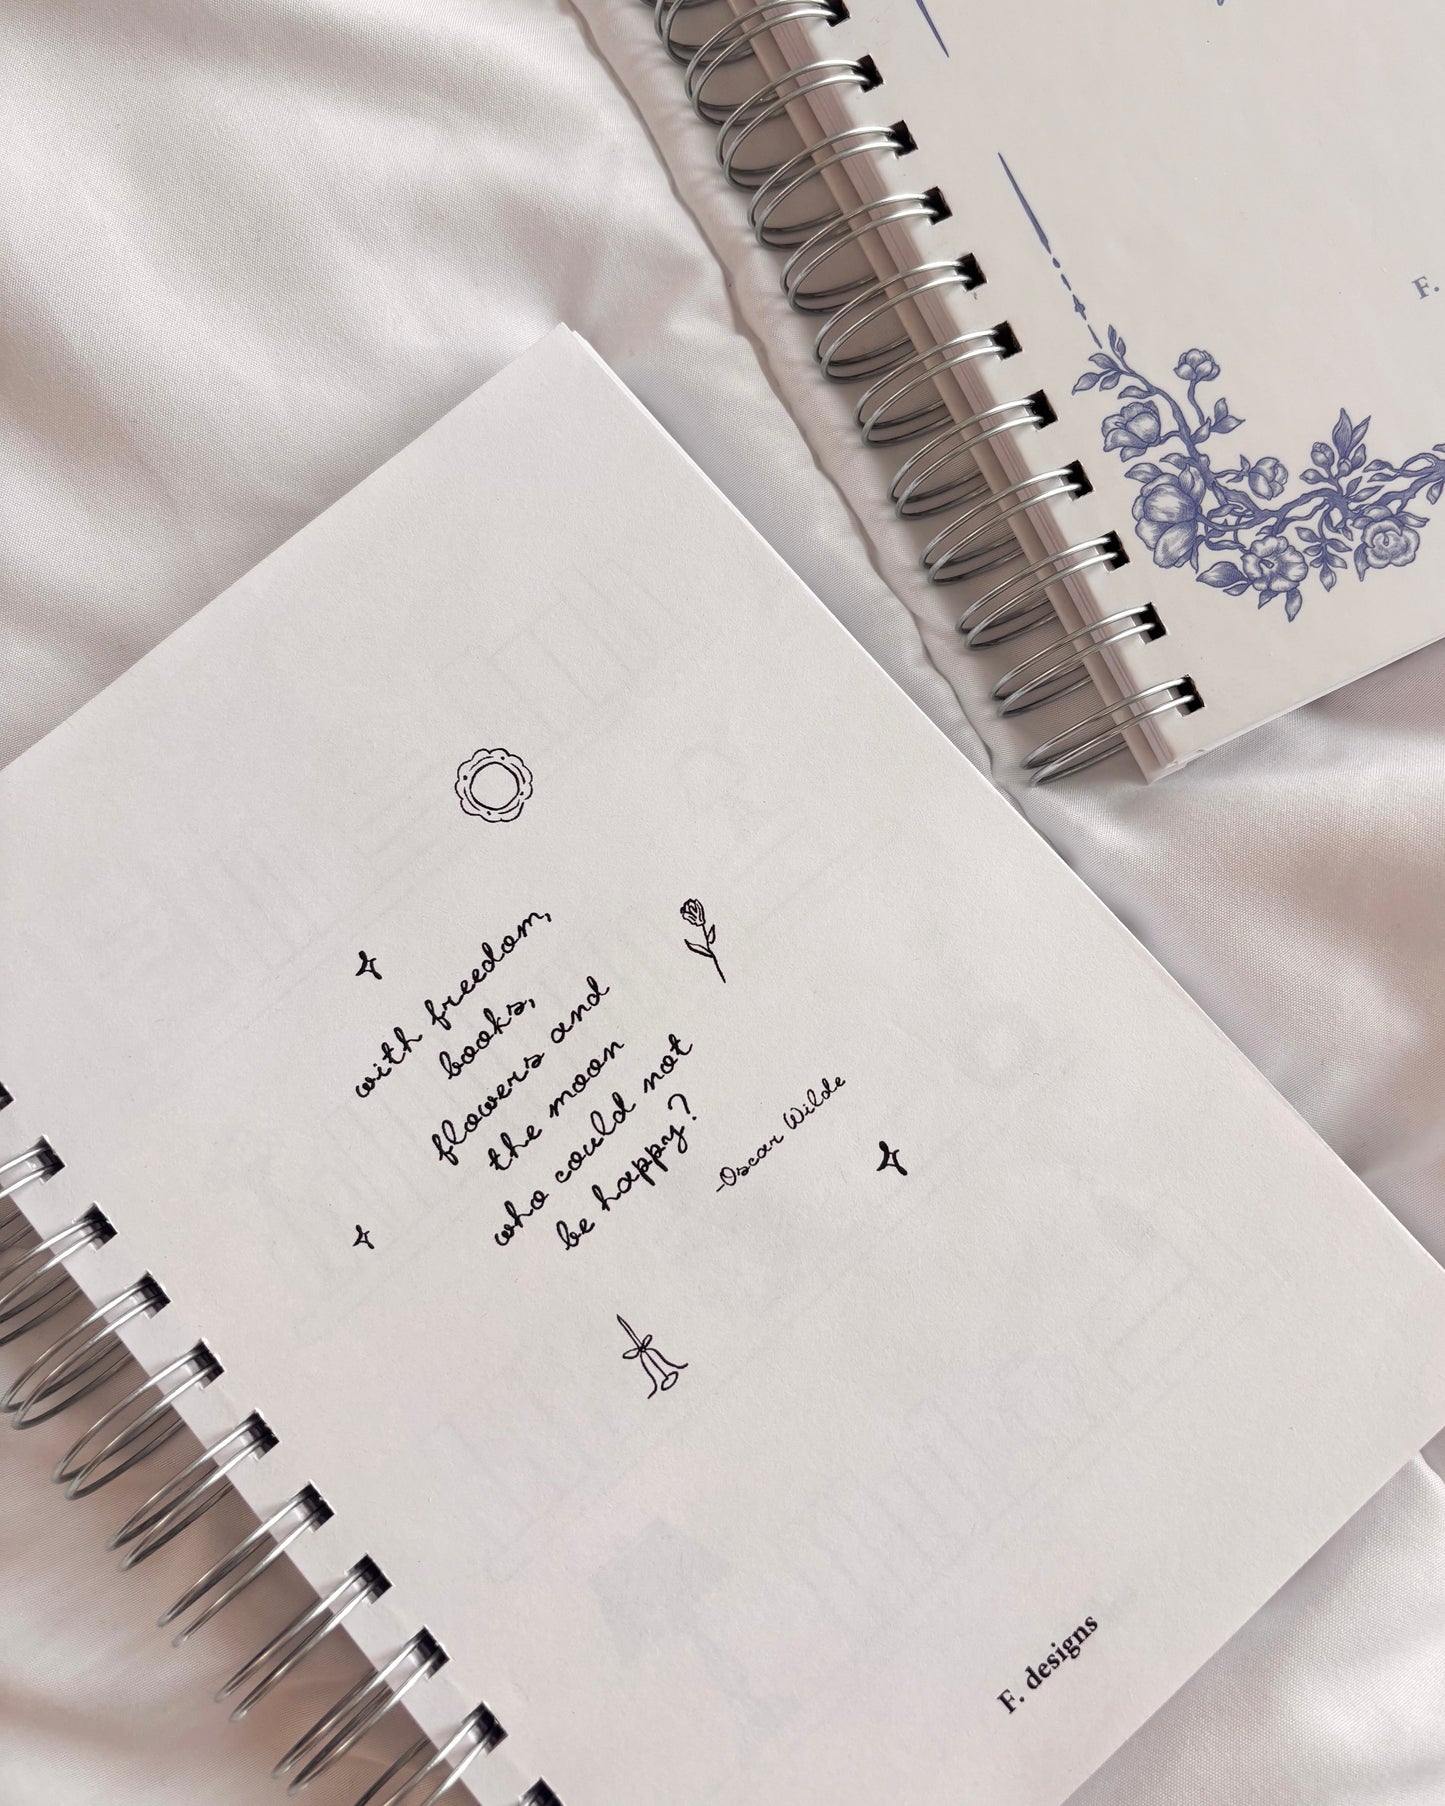 with freedom,
books,
flowers and
the moon
who could not
be happy?
-Oscar Wilde
F. designs
F.